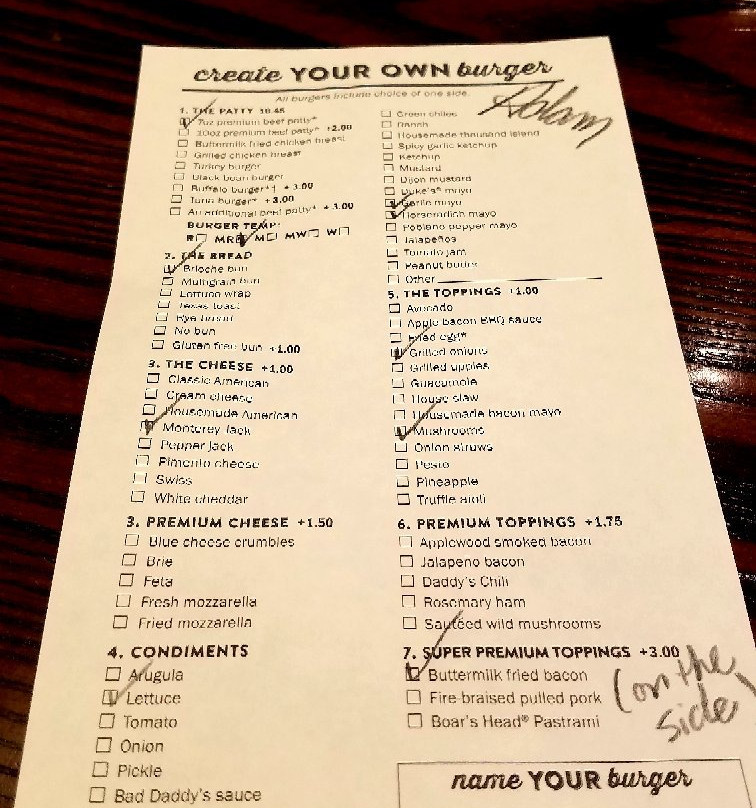 create YOUR OWN burger
All burgers include choice of one side.
1. THE PATTY 10.45
7oz premium beef patty*
10oz premium beef patty* +2.00
Buttermilk fried chicken breast
Grilled chicken breast
Turkey burger
Black bean burger
Buffalo burger*† +3.00
Tuna burger* +3.00
An additional beef patty* +3.00
BURGER TEMP:
R MR M MW W
2. THE BREAD
Brioche bun
Multigrain bun
Lettuce wrap
Texas toast
Rye bread
No bun
Gluten free bun +1.00
3. THE CHEESE +1.00
Classic American
Cream cheese
Housemade American
Monterey Jack
Pepper Jack
Pimento cheese
Swiss
White cheddar
3. PREMIUM CHEESE +1.50
Blue cheese crumbles
Brie
Feta
Fresh mozzarella
Fried mozzarella
4. CONDIMENTS
Arugula
Lettuce
Tomato
Onion
Pickle
Bad Daddy's sauce
Green chiles
Ranch
Housemade thousand island
Spicy garlic ketchup
Ketchup
Mustard
Dijon mustard
Duke's® mayo
Garlic mayo
Horseradish mayo
Poblano pepper mayo
Jalapeños
Tomato jam
Peanut butter
Other
5. THE TOPPINGS +1.00
Avocado
Apple bacon BBQ sauce
Fried egg*
Grilled onions
Grilled apples
Guacamole
House slaw
Housemade bacon mayo
Mushrooms
Onion straws
Pesto
Pineapple
Truffle aioli
6. PREMIUM TOPPINGS +1.75
Applewood smoked bacon
Jalapeno bacon
Daddy's Chili
Rosemary ham
Sautéed wild mushrooms
7. SUPER PREMIUM TOPPINGS +3.00
Buttermilk fried bacon
Fire-braised pulled pork
Boar's Head® Pastrami
(on the
side)
name YOUR burger